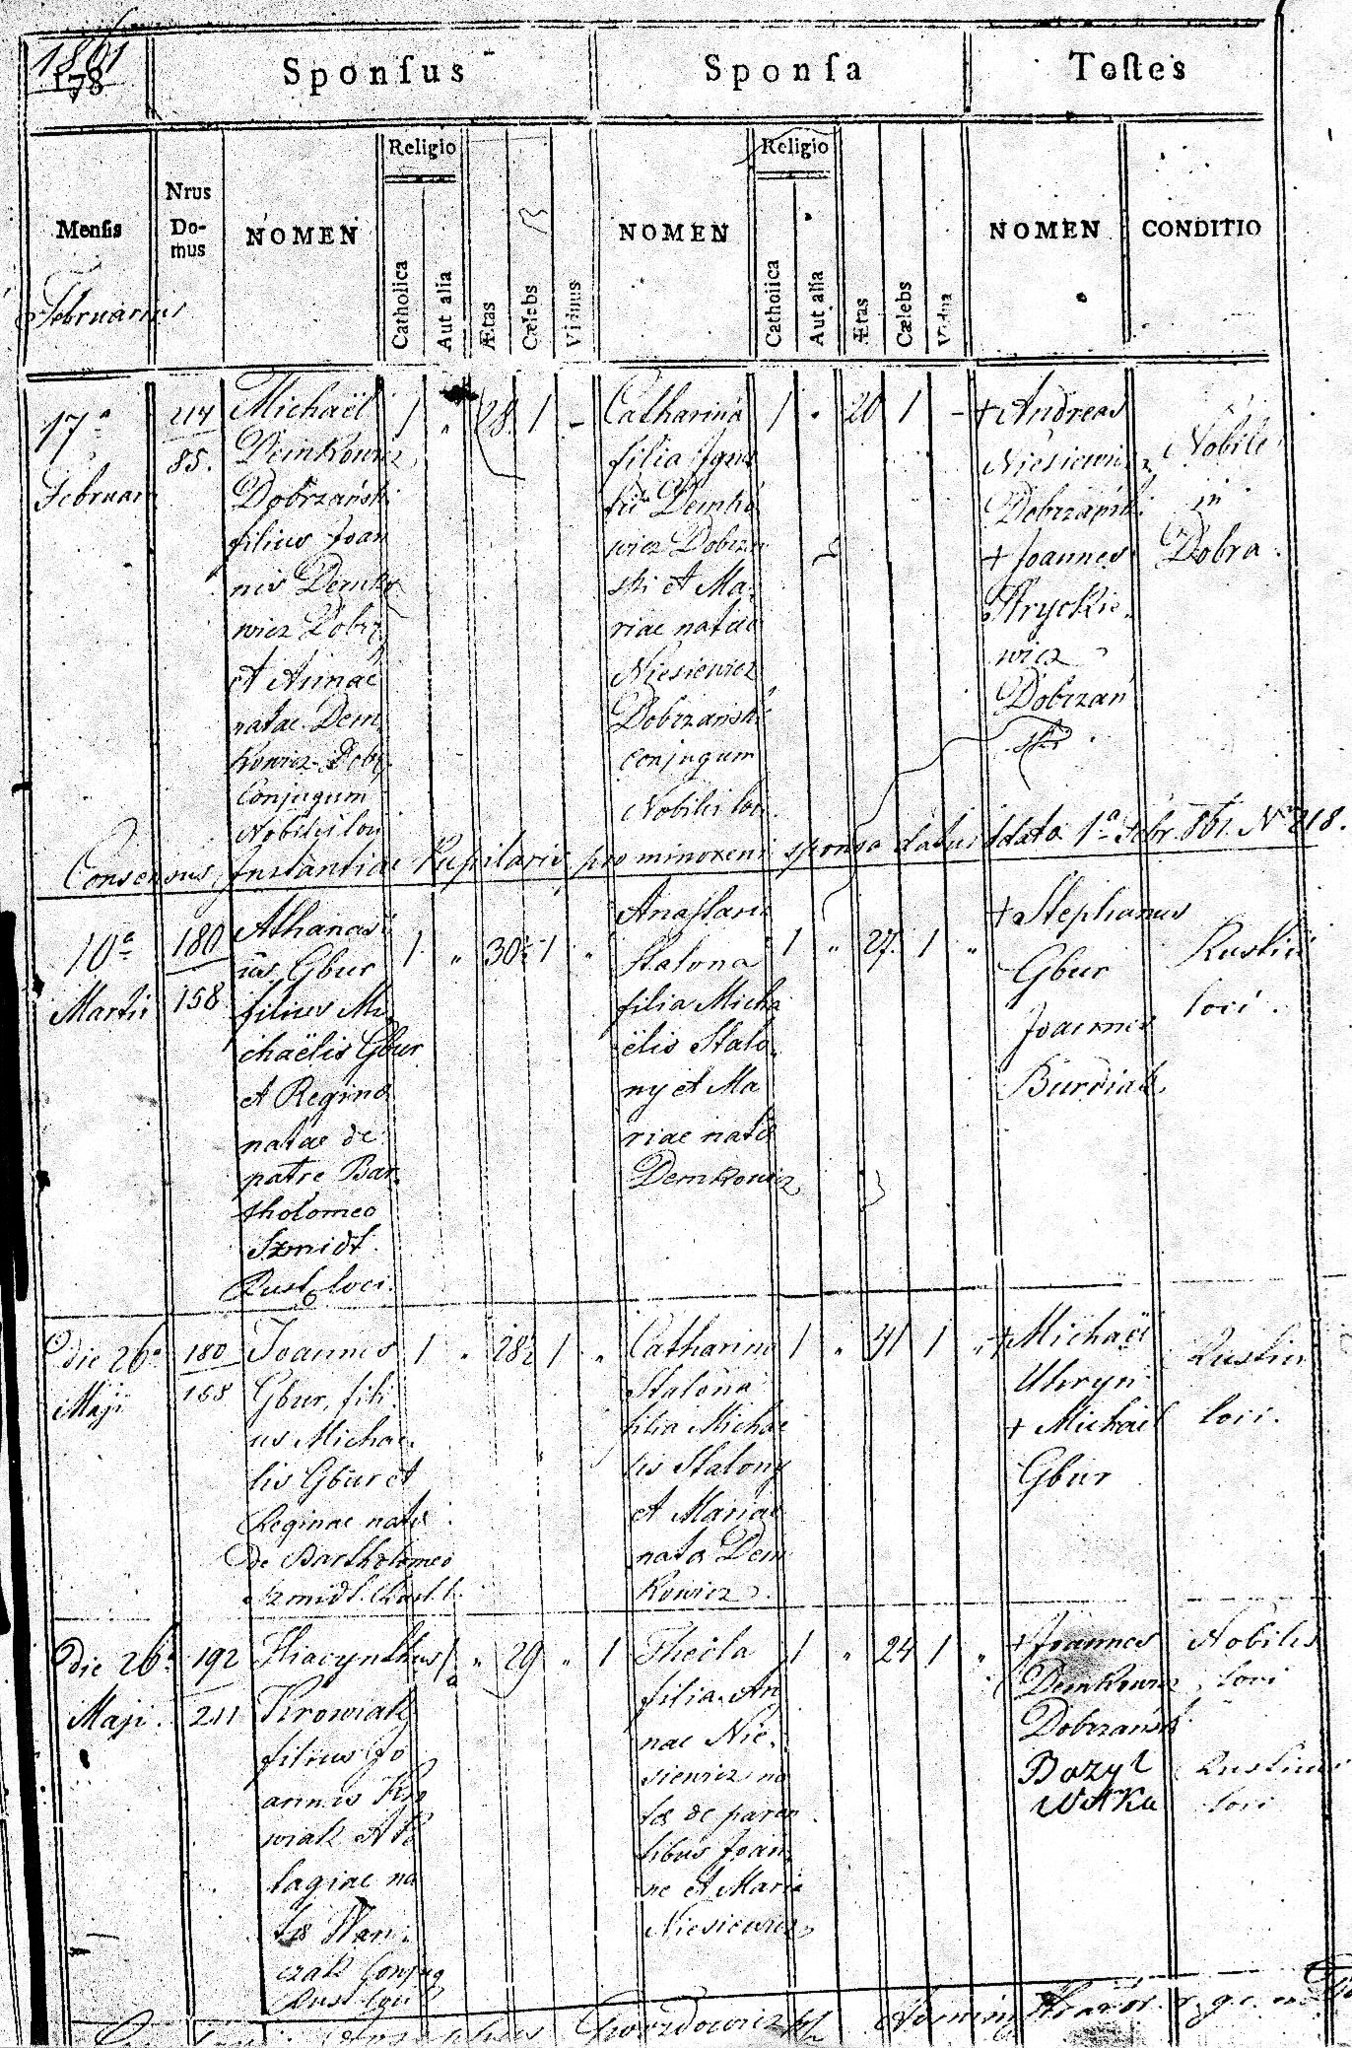 1861
178
Sponſus
Sponſa
Teſtes
Menſis
Nrus
Do-
mus
NOMEN
Religio
Catholica
Aut alia
Ætas
Cælebs
Viduus
NOMEN
Religio
Catholica
Aut alia
Ætas
Cælebs
Vidua
NOMEN
CONDITIO
Februarius
17a
Februarii
214
85.
Michaël
Demkowicz
Dobrzański
filius Joan
nis Demko
wicz Dobrz
et Annae
natae Dem
kowicz Dobrz
Conjugum
Nobiles loci
1 " 28. 1 -
Catharina
filia Igna
tii Demko
wicz Dobrzan
ski et Ma-
riae natae
Niesiewicz
Dobrzański
conjugum
Nobiles loci.
1 " 20 1 -
+ Andreas
Niesiewicz
Dobrzański
+ Joannes
Hryckie-
wicz
Dobrzań
ski.
Nobile
in
Dobra.
Consensus Instantiae Pupilaris pro minoreni sponsa datui ddato 1a Febr. 861. No 218.
10a
Martii
180
158
Athanasi
us Gbur
filius Mi
chaëlis Gbur
et Regina
natae de
patre Bar-
tholomeo
Szmidt.
Rust loci.
1 " 30½ 1 "
Anastasia
Stalona
filia Micha
ëlis Stalo
ny et Ma
riae natae
Demkowicz
1 " 27. 1 "
+ Stephanus
Gbur
Joannes
Burdiak
Rustici
loci.
die 26a
Maji
180
158
Joannes
Gbur, fili-
us Michae-
lis Gbur et
Reginae natae
de Bartholomeo
Szmidt. Rust. l.
1 " 28½ 1 "
Catharina
Stalona
filia Michae
lis Stalony
et Mariae
nata Dem
kowicz.
1 " 41 1 "
+ Michaël
Uhryn
+ Michaël
Gbur
Rustici
loci.
die 26a
Maji.
192
211
Hiacynthus
Krowiak
filius Jo
annis Kro
wiak et Pe
lagiae na
tae Stan-
czak Conjug
Rust loci
1 " 29 " 1
Thecla
filia An
nae Nie-
siewicz na
tae de paren
tibus Joan-
ne et Maria
Niesiewicz
1 " 24 1 "
+ Joannes
Demkowicz
Dobrzański
Bazyl
Witka
Nobiles
loci
Rusticus
loci